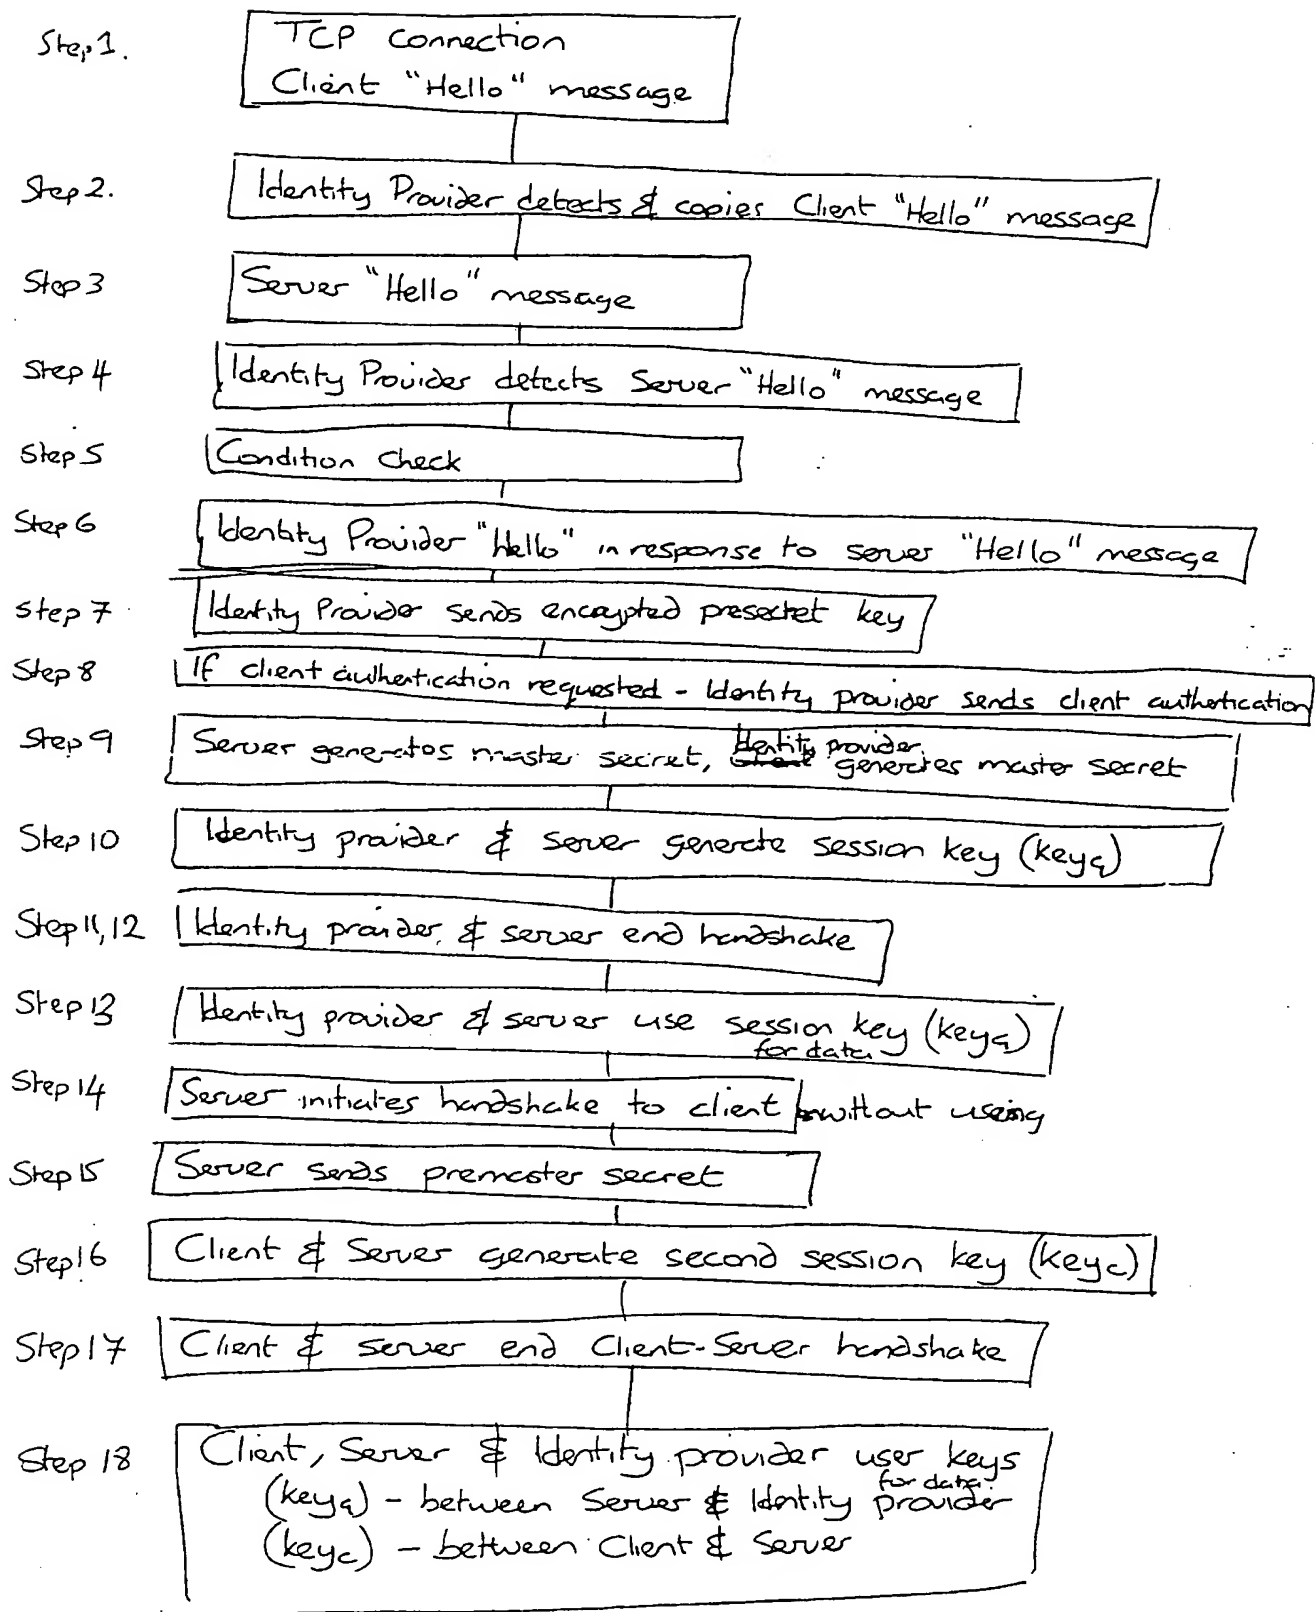 Step 1.
TCP connection
Client "Hello" message
Step 2.
Identity Provider detects & copies Client "Hello" message
Step 3
Server "Hello" message
Step 4
Identity Provider detects Server "Hello" message
Step 5
Condition Check
Step 6
Identity Provider "Hello" in response to server "Hello" message
Step 7
Identity Provider sends encrypted presectet key
Step 8
If client authentication requested - Identity provider sends client authentication
Step 9
Server generates master secret, Identity provider generates master secret
Step 10
Identity provider & server generate session key (keya)
Step 11, 12
Identity provider, & server end handshake
Step 13
Identity provider & server use session key (keya)
for data
Step 14
Server initiates handshake to client without using
Step 15
Server sends premaster secret
Step 16
Client & Server generate second session key (keyc)
Step 17
Client & server end Client-Server handshake
Step 18
Client, Server & Identity provider user keys
for data.
(keya) - between Server & Identity provider
(keyc) - between Client & Server